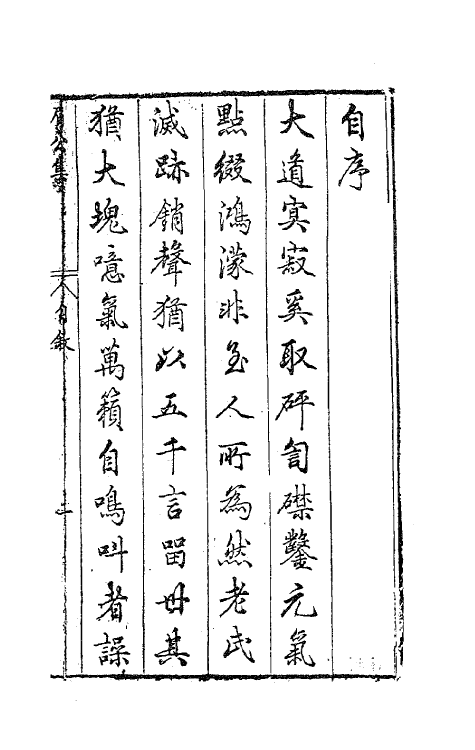 自序
大道寞寂奚取砰訇礏鑿元氣
點綴鴻濛非至人所為然老氏
滅跡銷聲猶以五千言留毋其
猶大塊噫氣萬籟自鳴叫者譟
自敘